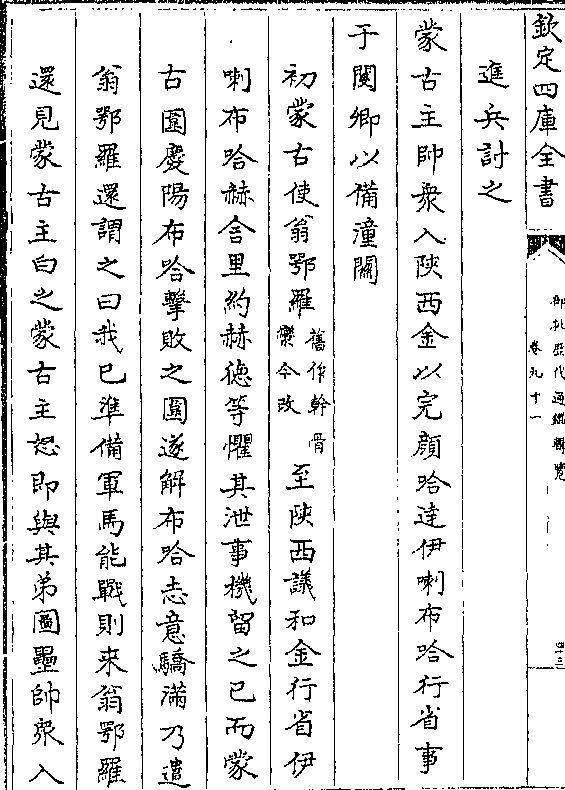 欽定四庫全書
御批歷代通鑑輯覽
卷九十一
進兵計之
蒙古主帥衆入陝西金以完顔哈達伊喇布哈行省事
于閿鄉以備潼關
初蒙古使翁鄂羅舊作斡骨欒今改至陝西議和金行省伊
喇布哈赫舍里約赫德等懼其泄事機留之已而蒙
古圍慶陽布哈擊敗之圍遂解布哈志意驕滿乃遣
翁鄂羅還謂之曰我已準備軍馬能戰則來翁鄂羅
還見蒙古主白之蒙古主怒即與其弟圖壘帥衆入